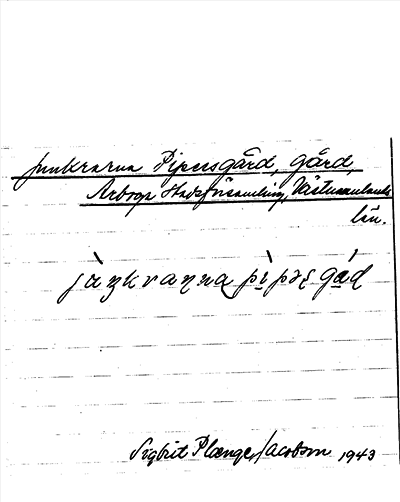 Junkrarna Pipersgård, gård,
Arboga Stadsförsamling, Västmanlands
län.
pi̱pəʂ gå̱d
Sigbrit Plænge Jacobson 1943